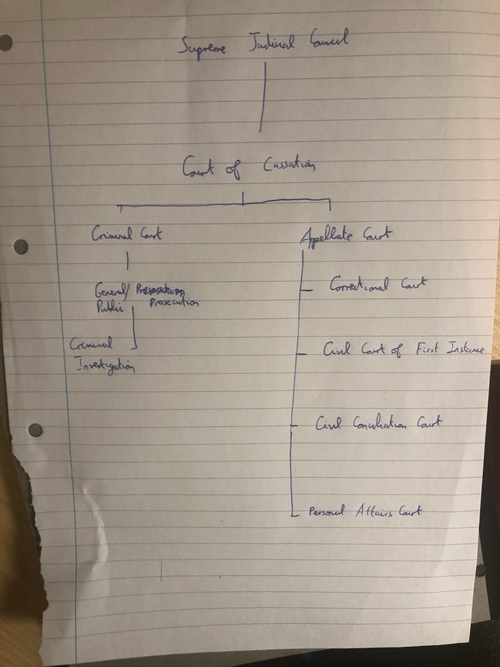 Supreme Judicial Council
Court of Cassation
Criminal Court
General/
Public Prosecution
Criminal
Investigation
Appellate Court
Correctional Court
Civil Court of First Instance
Civil Conciliation Court
Personal Affairs Court